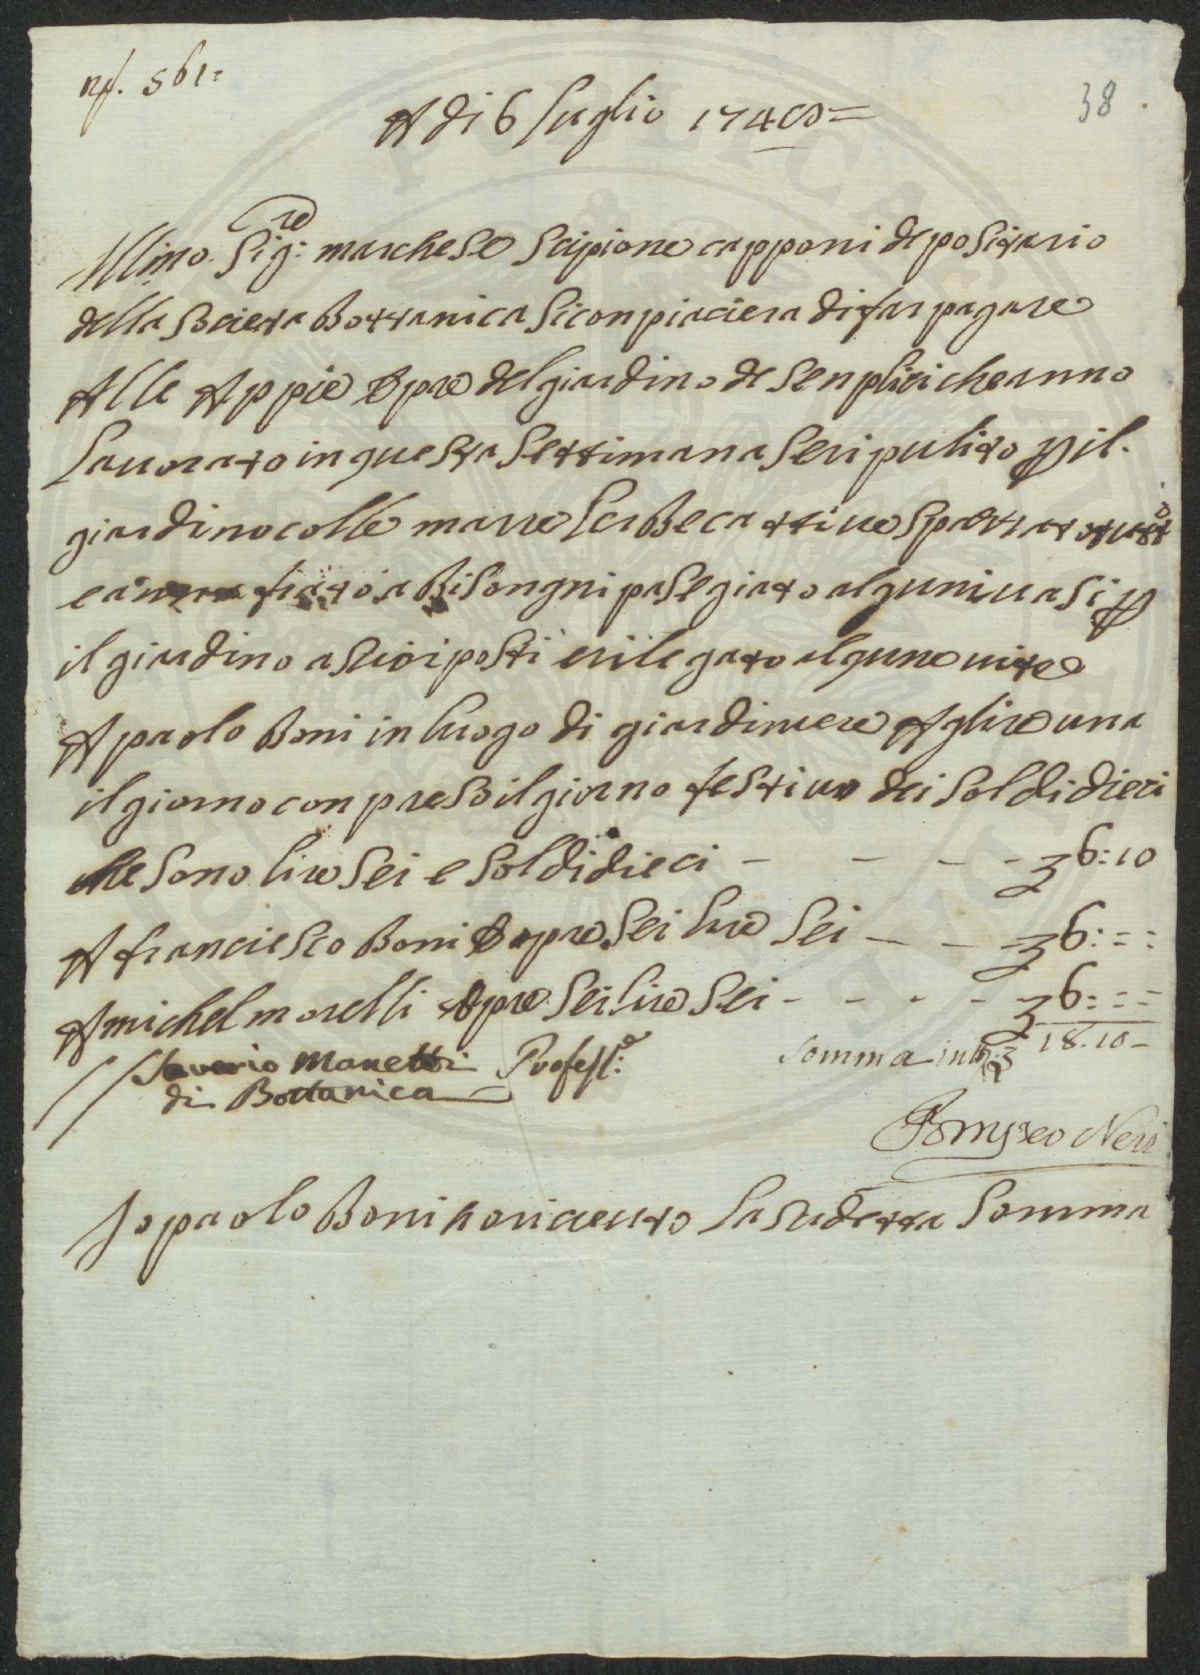 nf. 561:
38
A di 6 luglio 1748=
Illmo. Sigre: marchese Scipione capponi depositario
della Societa Bottanica Si conpiaciera di far pagare
Alle Appie Opre del giardino de Senplici che anno
Lauorato in questa Settimana Seripulito p il.
giardino colle marre
il giardino a Seioiposti erilegato algune uite
A paolo Boni in luogo di giardiniere A glire una
il giorno conpreso il giorno festiuo dei Soldi dieci
che Sono lire Sei e Soldi dieci - - - - 6:10
A franciesco Boni Opre Sei lire Sei - - - 6:==:
A michel morelli Opre Sei lire Sei - - - - 6:==
Saverio Manetti Profess:e
Somma in tto: 18.10-
di Bottanica
Pompeo Neri
Io paolo Boni o riceuuto La Sudetta Somma